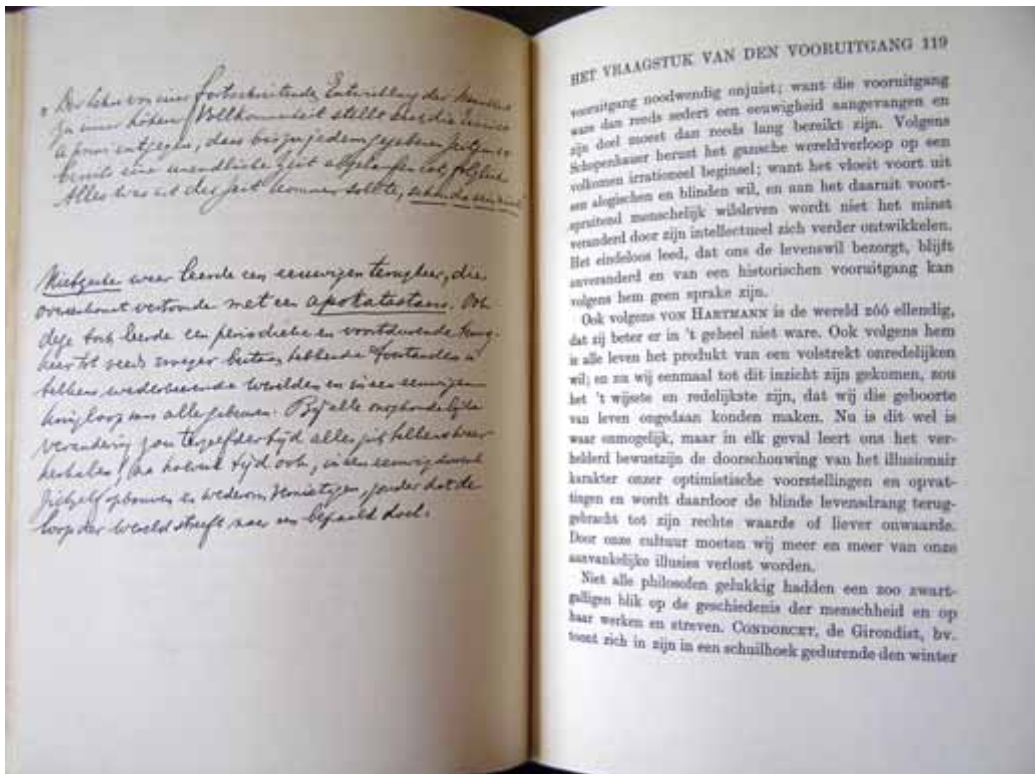 Der Lehre von einer fortschreitenden Entwicklung der Menschheit
zu einer höhern Vollkommenheit stellt
a priori entgegen, dass bis zu jedem gegebenen Zeitpunkt
bereits eine unendliche Zeit abgelaufen ist, folglich
Alles was mit der Zeit kommen sollte, schon da sein
Nietzsche weer leerde een eeuwigen terugkeer, die
overeenkomst vertoonde met een apokatastasis. Ook
deze toch leerde een periodieke en voortdurende terug-
keer tot reeds vroeger bestaan hebbende toestanden in
telkens wederkeerende werelden en in een eeuwigen
kringloop van alle gebeuren. Bij alle onophoudelijke
verandering zou terzelfder tijd alles zich telkens weer
herhalen, na zekeren tijd ook, in een eeuwig
zichzelf opbouwen en wederom vernietigen, zonder dat de
loop der wereld streeft naar een bepaald doel.
HET VRAAGSTUK VAN DEN VOORUITGANG 119
vooruitgang noodwendig onjuist; want die vooruitgang
ware dan reeds sedert een eeuwigheid aangevangen en
zijn doel moest dan reeds lang bereikt zijn. Volgens
Schopenhauer berust het gansche wereldverloop op een
volkomen irrationeel beginsel; want het vloeit voort uit
een alogischen en blinden wil, en aan het daaruit voort-
spruitend menschelijk wilsleven wordt niet het minst
veranderd door zijn intellectueel zich verder ontwikkelen.
Het eindeloos leed, dat ons de levenswil bezorgt, blijft
onveranderd en van een historischen vooruitgang kan
volgens hem geen sprake zijn.
Ook volgens VON HARTMANN is de wereld zóó ellendig,
dat zij beter er in 't geheel niet ware. Ook volgens hem
is alle leven het produkt van een volstrekt onredelijken
wil; en nu wij eenmaal tot dit inzicht zijn gekomen, zou
het 't wijste en redelijkste zijn, dat wij die geboorte
van leven ongedaan konden maken. Nu is dit wel is
waar onmogelijk, maar in elk geval leert ons het ver-
helderd bewustzijn de doorschouwing van het illusionair
karakter onzer optimistische voorstellingen en opvat-
tingen en wordt daardoor de blinde levensdrang terug-
gebracht tot zijn rechte waarde of liever onwaarde.
Door onze cultuur moeten wij meer en meer van onze
aanvankelijke illusies verlost worden.
Niet alle philosofen gelukkig hadden een zoo zwart-
galligen blik op de geschiedenis der menschheid en op
haar werken en streven. CONDORCET, de Girondist, bv.
toont zich in zijn in een schuilhoek gedurende den winter